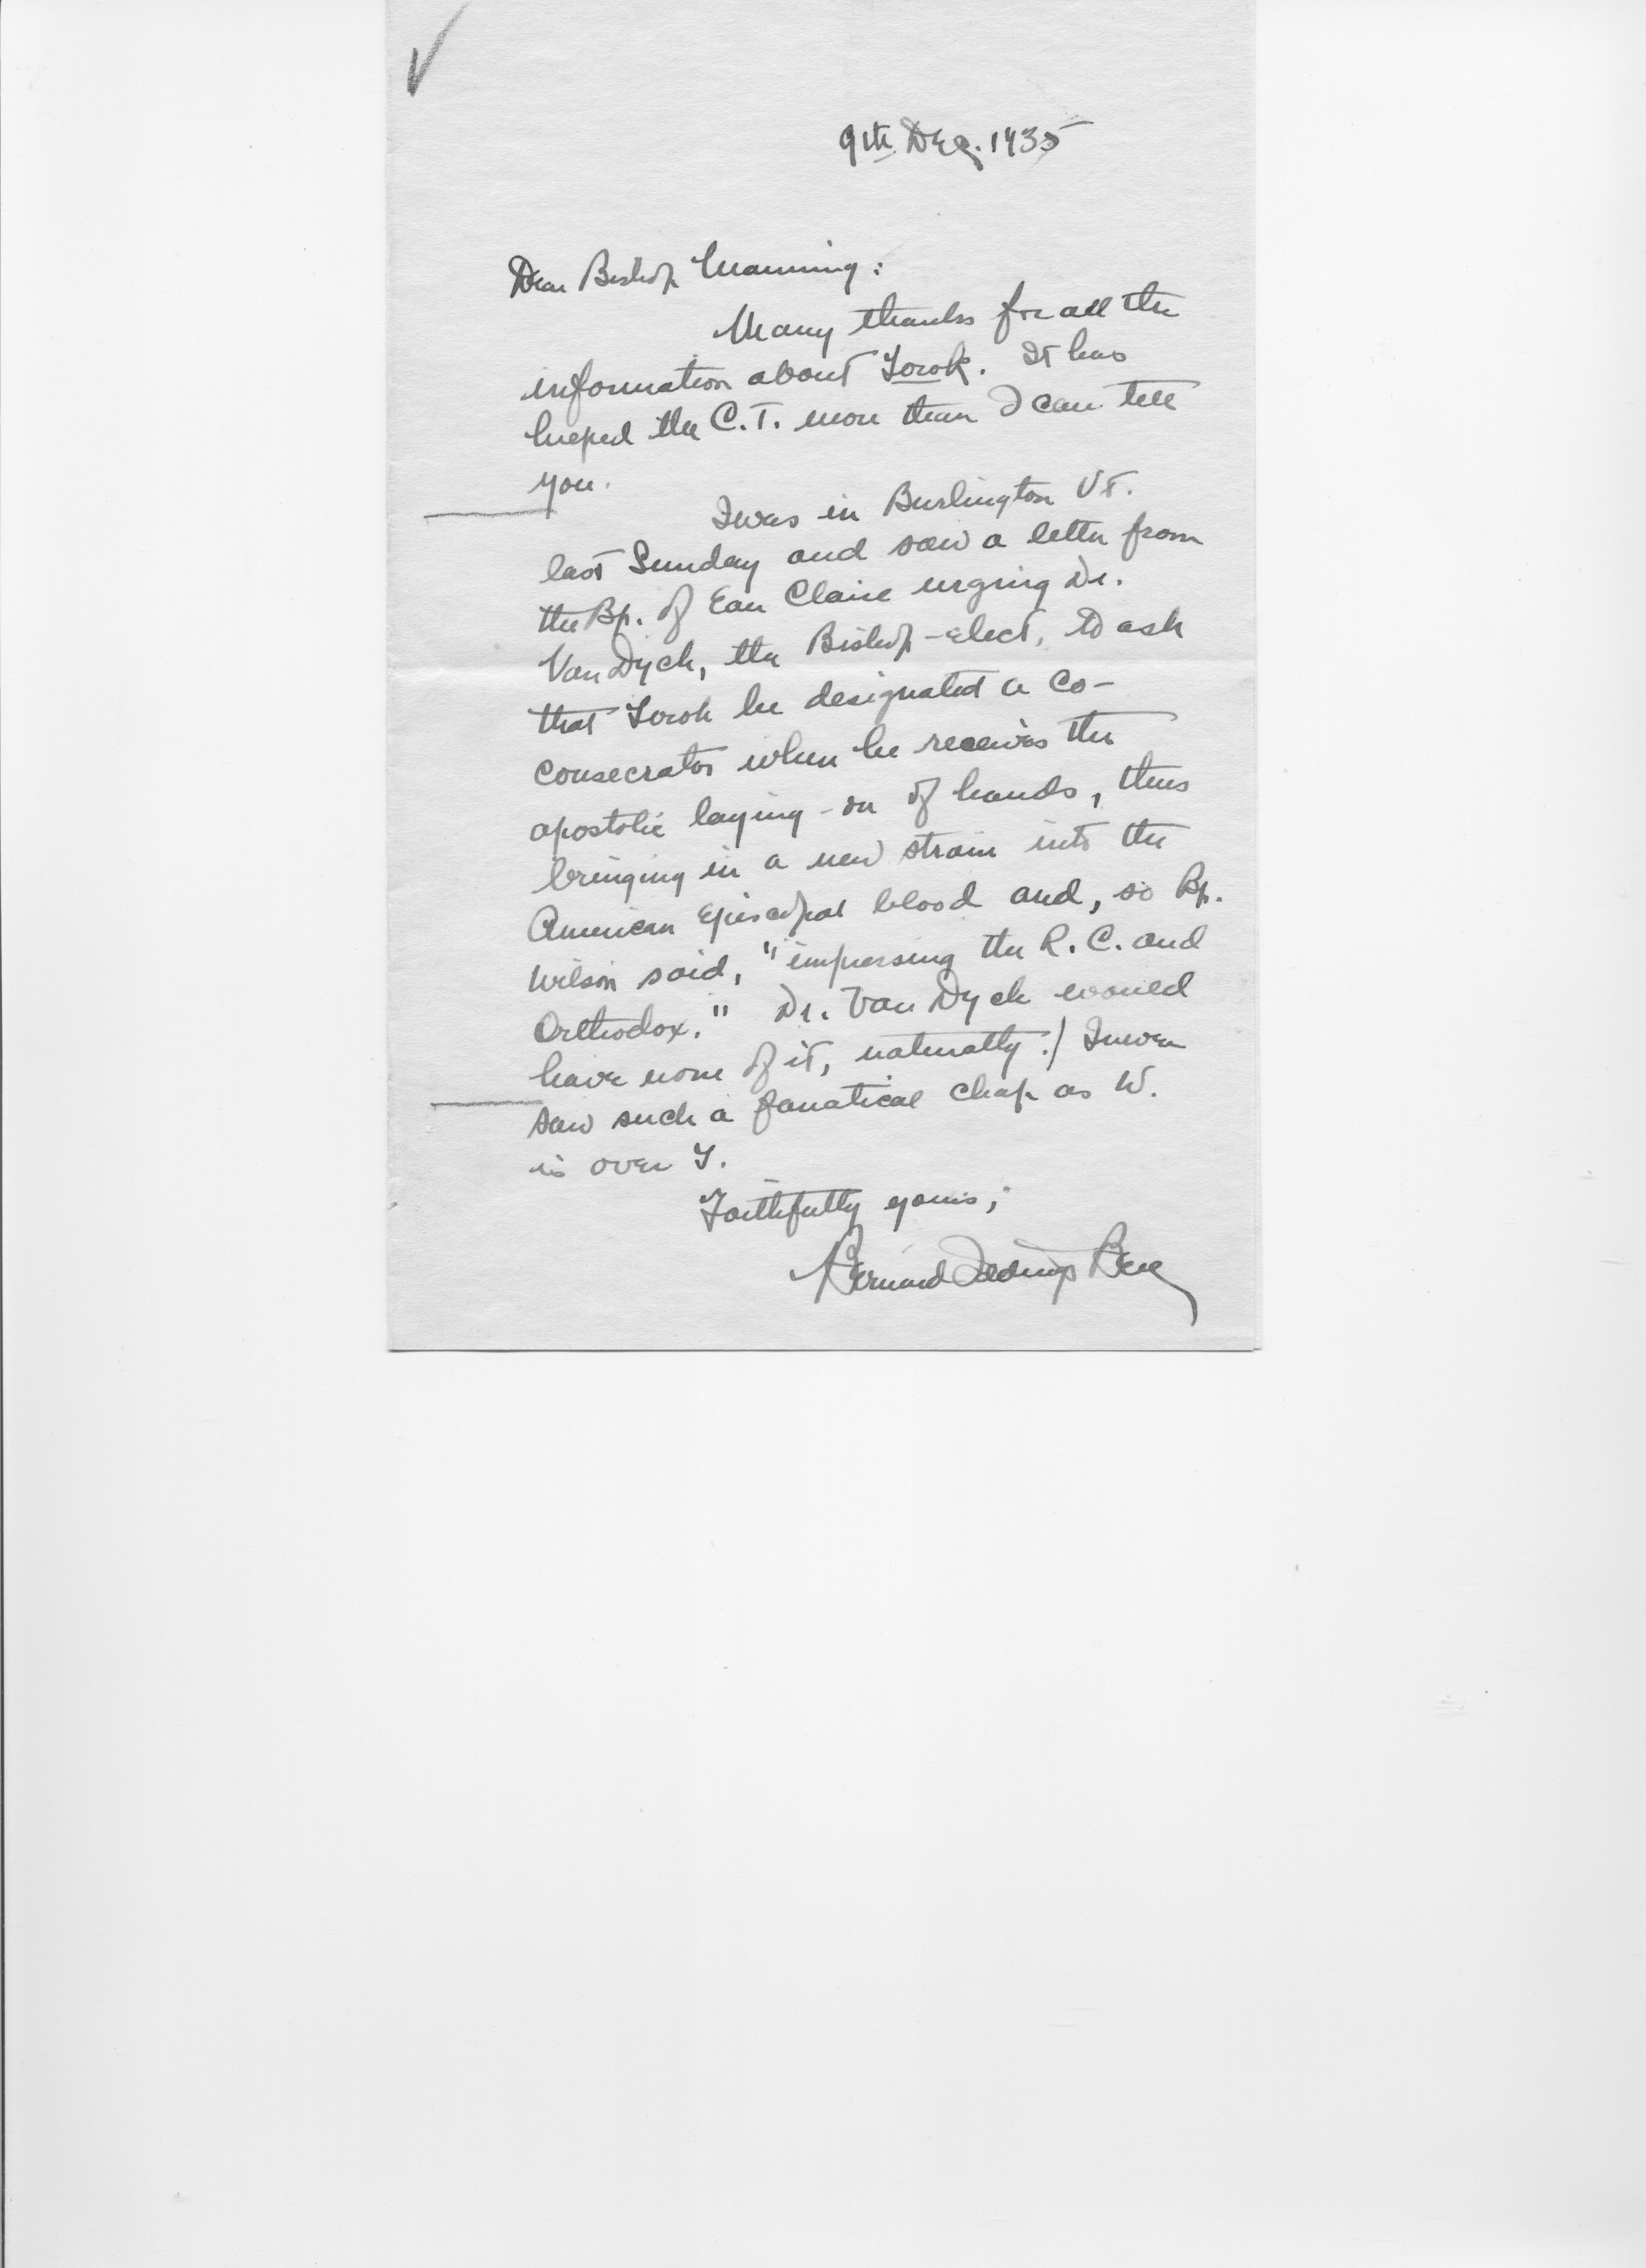 9th Dec. 1935
Dear Bishop Manning:
Many thanks for all the
information about Torok. It has
helped the C.T. more than I can tell
you.
I was in Burlington Vt.
last Sunday and saw a letter from
the Bp. of Eau Claire urging Dr.
Van Dyck, the Bishop-elect, to ask
that Torok be designated a co-
consecrator when he receives the
apostolic laying-on of hands, thus
bringing in a new strain into the
American Episcopal blood and, so Bp.
Wilson said, "impressing the R.C. and
Orthodox." Dr. Van Dyck would
have none of it, naturally! / I never
saw such a fanatical chap as W.
is over T.
Faithfully yours,
Bernard Iddings Bell